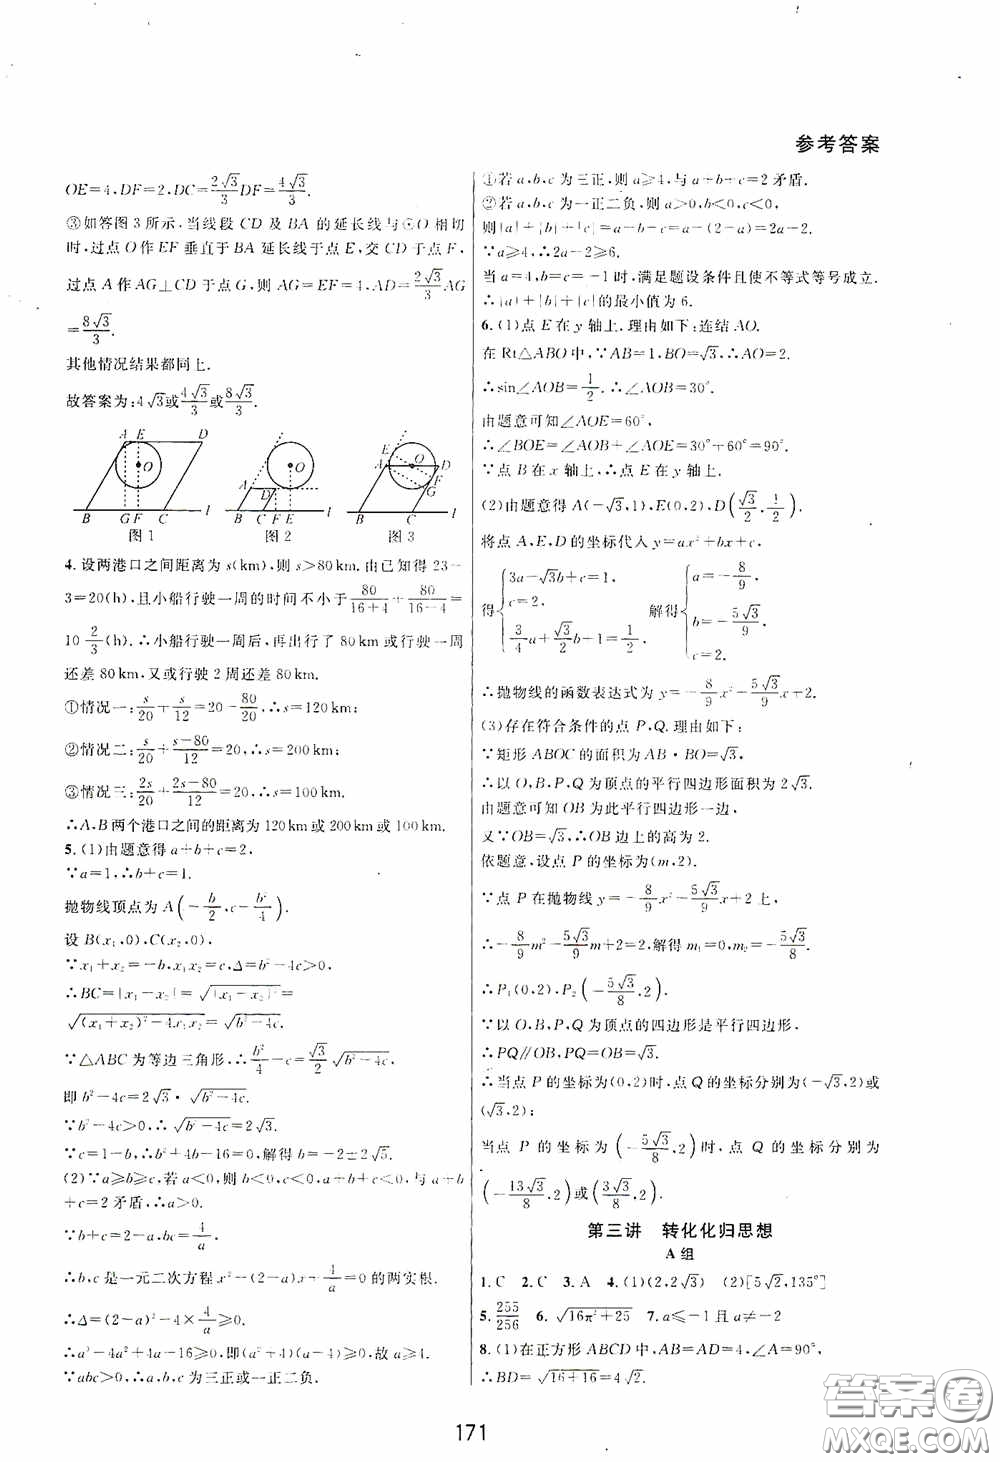 参考答案
OE=4,DF=2,DC=\frac{2\sqrt{3}}{3}DF=\frac{4\sqrt{3}}{3}.
③如答图3所示,当线段CD及BA的延长线与⊙O相切
时,过点O作EF垂直于BA延长线于点E,交CD于点F,
过点A作AG⊥CD于点G,则AG=EF=4,AD=\frac{2\sqrt{3}}{3}AG
=\frac{8\sqrt{3}}{3}.
其他情况结果都同上.
故答案为:4\sqrt{3}或\frac{4\sqrt{3}}{3}或\frac{8\sqrt{3}}{3}.
A E D O B G F C l
图1
A D O B C F E l
图2
A D O E F G B C l
图3
4.设两港口之间距离为s(km),则s>80km.由已知得23-
3=20(h),且小船行驶一周的时间不小于\frac{80}{16+4}+\frac{80}{16-4}=
10\frac{2}{3}(h).∴小船行驶一周后,再出行了80km或行驶一周
还差80km,又或行驶2周还差80km.
①情况一:\frac{s}{20}+\frac{s}{12}=20-\frac{80}{20},∴s=120km;
②情况二:\frac{s}{20}+\frac{s-80}{12}=20,∴s=200km;
③情况三:\frac{2s}{20}+\frac{2s-80}{12}=20,∴s=100km.
∴A、B两个港口之间的距离为120km或200km或100km.
5.(1)由题意得a+b+c=2,
∵a=1,∴b+c=1.
抛物线顶点为A(-\frac{b}{2},c-\frac{b²}{4}).
设B(x₁,0),C(x₂,0),
∵x₁+x₂=-b,x₁x₂=c,Δ=b²-4c>0,
∴BC=|x₁-x₂|=\sqrt{|x₁-x₂|²}=
\sqrt{(x₁+x₂)²-4x₁x₂}=\sqrt{b²-4c}.
∵△ABC为等边三角形,∴\frac{b²}{4}-c=\frac{\sqrt{3}}{2}\sqrt{b²-4c},
即b²-4c=2\sqrt{3}·\sqrt{b²-4c}.
∵b²-4c>0,∴\sqrt{b²-4c}=2\sqrt{3}.
∵c=1-b,∴b²+4b-16=0,解得b=-2±2\sqrt{5}.
(2)∵a≥b≥c,若a<0,则b<0,c<0,a+b+c<0,与a+b
+c=2矛盾,∴a>0.
∵b+c=2-a,bc=\frac{4}{a},
∴b,c是一元二次方程x²-(2-a)x+\frac{4}{a}=0的两实根.
∴Δ=(2-a)²-4×\frac{4}{a}≥0,
∴a³-4a²+4a-16≥0,即(a²+4)(a-4)≥0,故a≥4.
∵abc>0,∴a,b,c为三正或一正二负.
①若a,b,c为三正,则a≥4,与a+b+c=2矛盾.
②若a,b,c为一正二负,则a>0,b<0,c<0,
则|a|+|b|+|c|=a-b-c=a-(2-a)=2a-2.
∵a≥4,∴2a-2≥6.
当a=4,b=c=-1时,满足题设条件且使不等式等号成立.
∴|a|+|b|+|c|的最小值为6.
6.(1)点E在y轴上.理由如下:连结AO.
在Rt△ABO中,∵AB=1,BO=\sqrt{3},∴AO=2.
∴sin∠AOB=\frac{1}{2}.∴∠AOB=30°.
由题意可知∠AOE=60°.
∴∠BOE=∠AOB+∠AOE=30°+60°=90°.
∵点B在x轴上,∴点E在y轴上.
(2)由题意得A(-\sqrt{3},1),E(0,2),D(-\frac{\sqrt{3}}{2},\frac{1}{2}).
将点A,E,D的坐标代入y=ax²+bx+c,
得{3a-\sqrt{3}b+c=1, c=2, \frac{3}{4}a+\frac{\sqrt{3}}{2}b-1=\frac{1}{2}, 解得{a=-\frac{8}{9}, b=-\frac{5\sqrt{3}}{9}, c=2.
∴抛物线的函数表达式为y=-\frac{8}{9}x²-\frac{5\sqrt{3}}{9}x+2.
(3)存在符合条件的点P,Q.理由如下:
∵矩形ABOC的面积为AB·BO=\sqrt{3},
∴以O,B,P,Q为顶点的平行四边形面积为2\sqrt{3}.
由题意可知OB为此平行四边形一边,
又∵OB=\sqrt{3},∴OB边上的高为2.
依题意,设点P的坐标为(m,2).
∵点P在抛物线y=-\frac{8}{9}x²-\frac{5\sqrt{3}}{9}x+2上,
∴-\frac{8}{9}m²-\frac{5\sqrt{3}}{9}m+2=2.解得m₁=0,m₂=-\frac{5\sqrt{3}}{8}.
∴P₁(0,2),P₂(-\frac{5\sqrt{3}}{8},2).
∵以O,B,P,Q为顶点的四边形是平行四边形,
∴PQ∥OB,PQ=OB=\sqrt{3}.
∴当点P的坐标为(0,2)时,点Q的坐标分别为(-\sqrt{3},2)或
(\sqrt{3},2);
当点P的坐标为(-\frac{5\sqrt{3}}{8},2)时,点Q的坐标分别为
(-\frac{13\sqrt{3}}{8},2)或(\frac{3\sqrt{3}}{8},2).
第三讲 转化化归思想
A组
1.C 2.C 3.A 4.(1)(2,2\sqrt{3}) (2)[5\sqrt{2},135°]
5.\frac{255}{256} 6.\sqrt{16π²+25} 7.a≤-1且a≠-2
8.(1)在正方形ABCD中,AB=AD=4,∠A=90°,
∴BD=\sqrt{16+16}=4\sqrt{2}.
171
答案圈
MXQE.COM